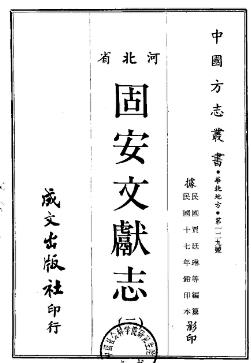 中國方志叢書・華北地方・第一二九號
據民國賈廷琳等編纂
民國十七年鉛印本影印
河北省
固安文獻志
(一)
成文出版社印行